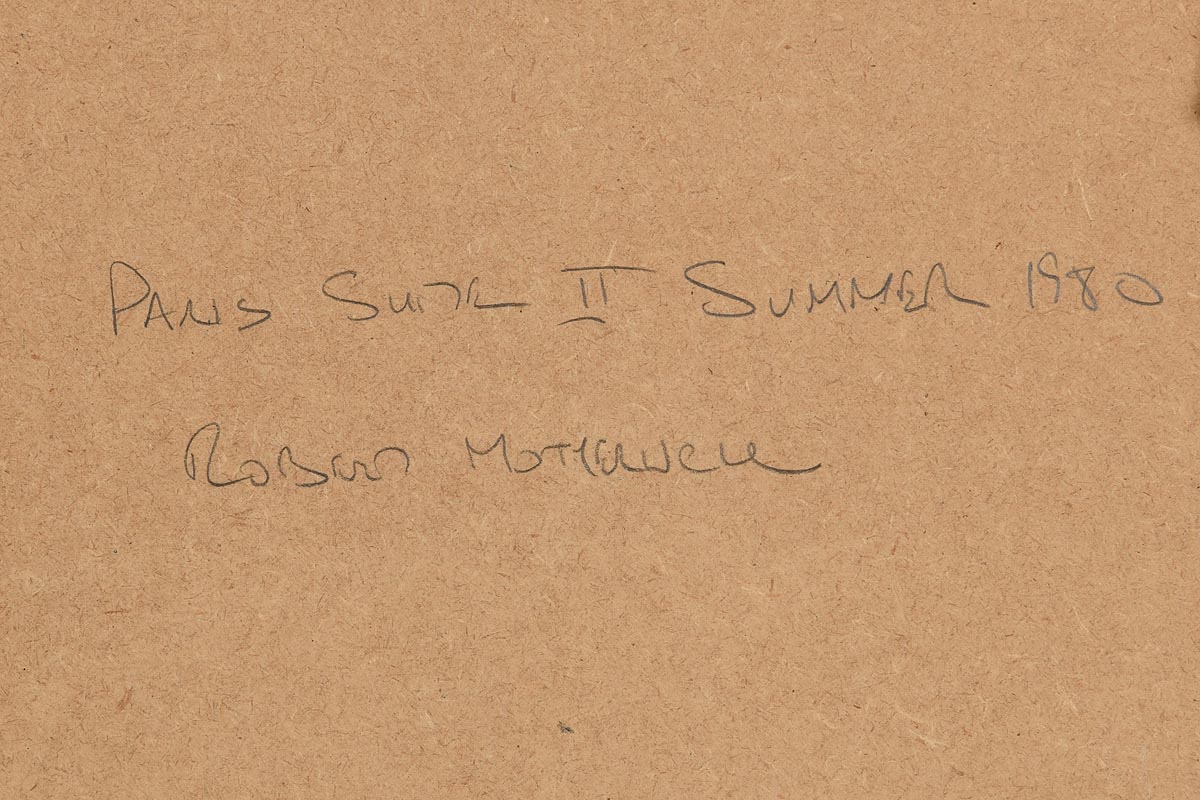 PARIS SUITE II SUMMER 1980
ROBERT MOTHERWELL